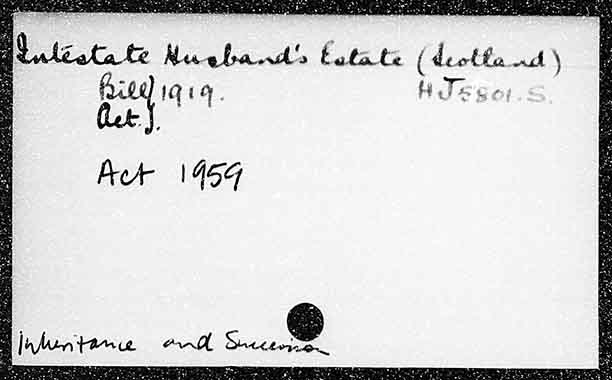 Intestate Husband's Estate (Scotland)
Bill } 1919. HJ5801.S.
Act }.
Act 1959
Inheritance and Succession